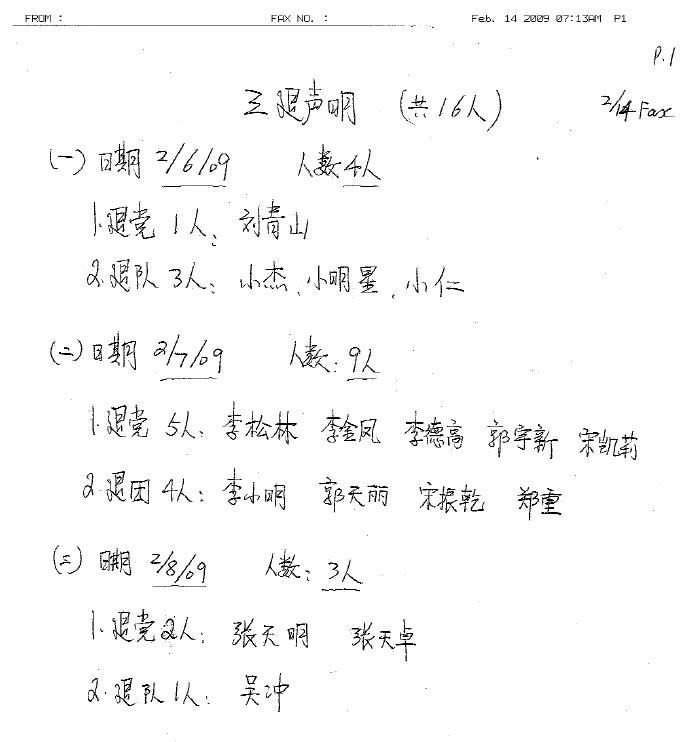 FROM : FAX NO. : Feb. 14 2009 07:13AM P1
P.1
三退声明 (共16人) 2/14 Fax
(一) 日期 2/6/09 人数4人
1.退党 1人: 刘青山
2.退队 3人: 小杰、小明星、小仁
(二) 日期 2/7/09 人数: 9人
1.退党 5人: 李松林 李金凤 李德高 郭宇新 宋凯莉
2.退团 4人: 李小明 郭天丽 宋振乾 郑重
(三) 日期 2/8/09 人数: 3人
1.退党2人: 张天明 张天卓
2.退队1人: 吴冲